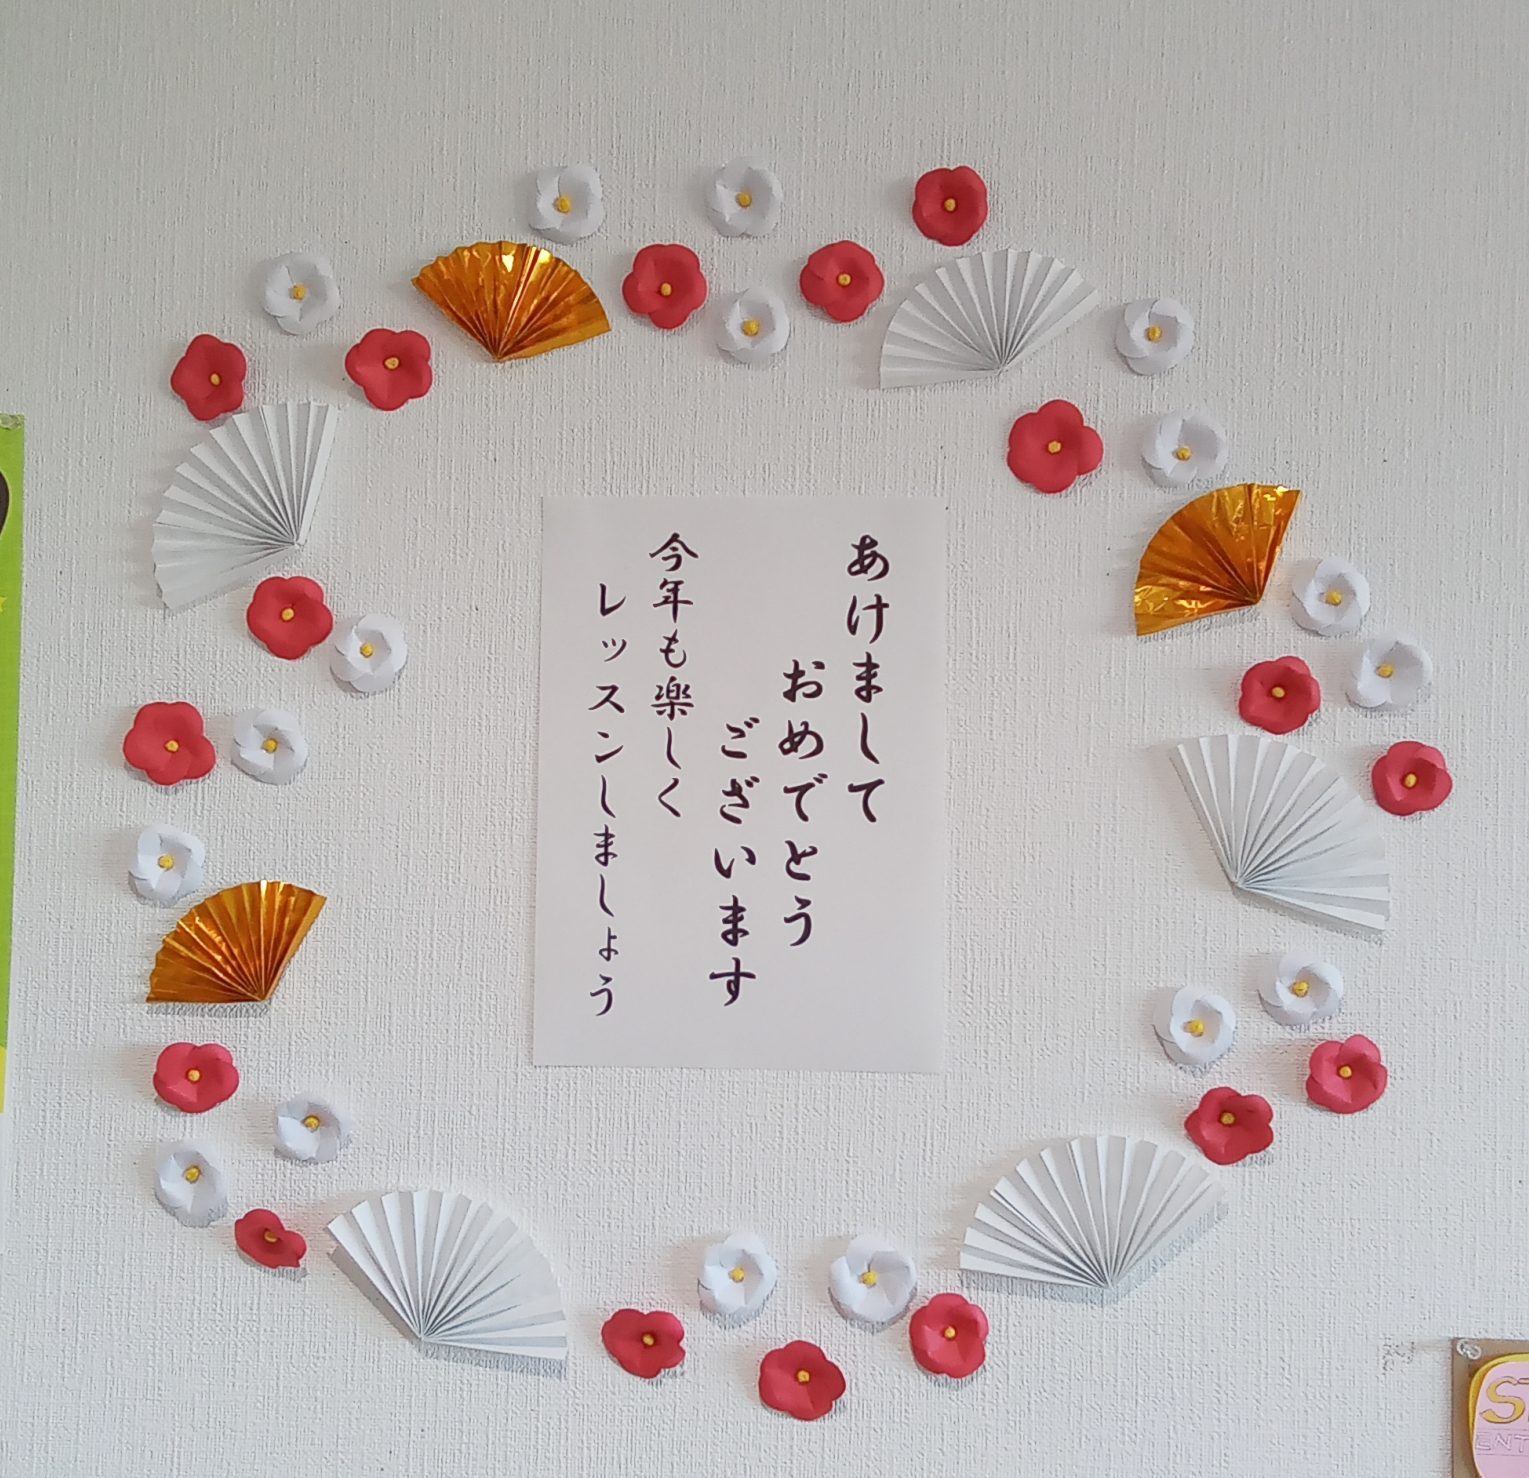 あけまして
おめでとう
ございます
今年も楽しく
レッスンしましょう